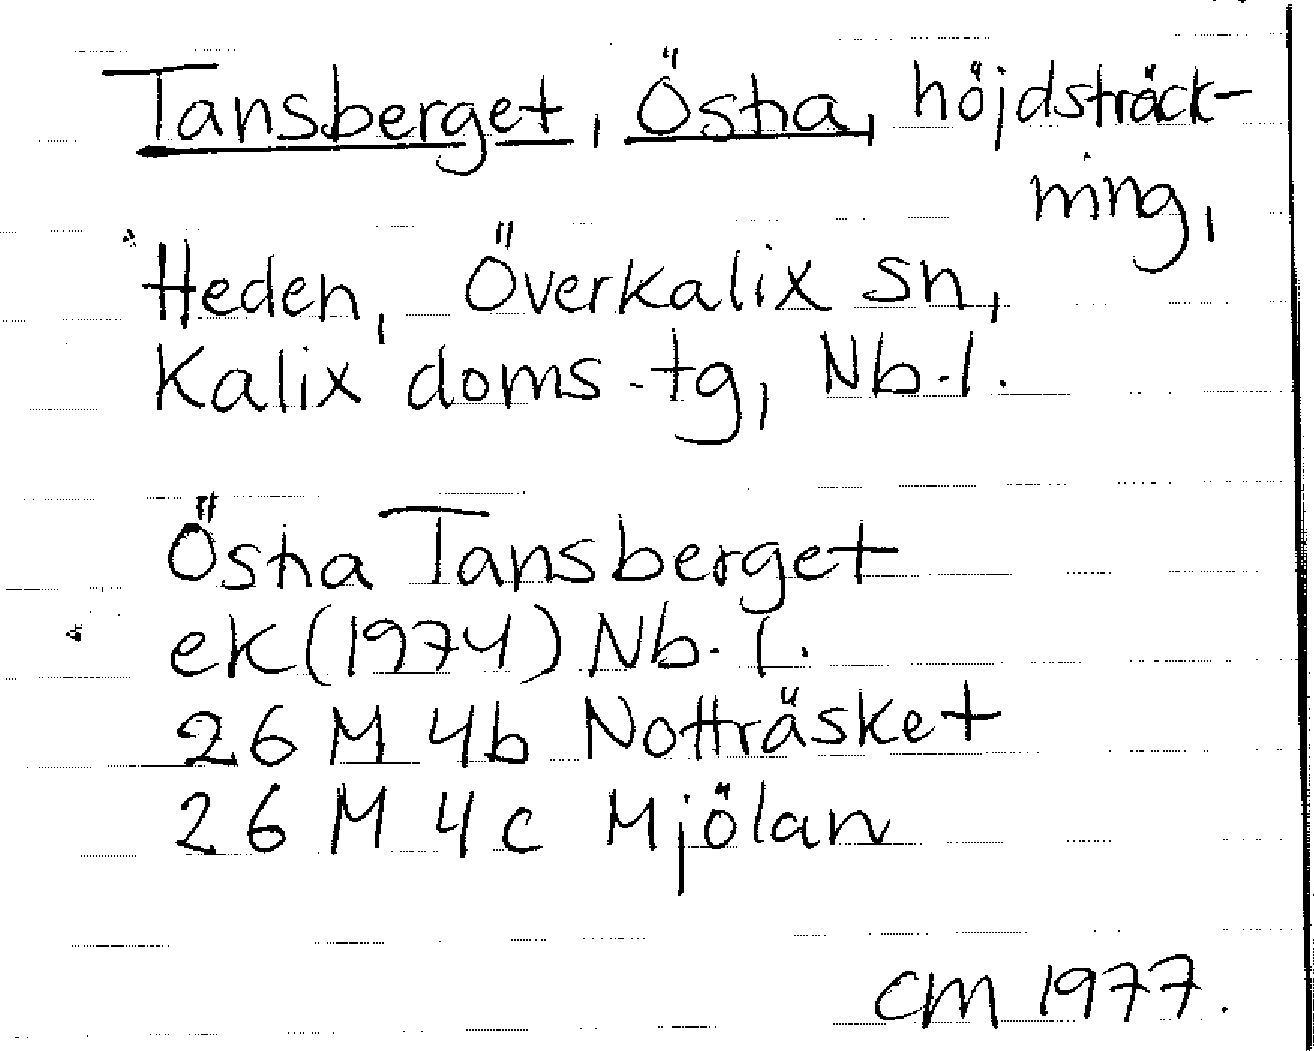 Tansberget, Östra, höjdsträck-
ning,
Heden, Överkalix sn,
Kalix doms.tg, Nb.l.
Östra Tansberget
ek (1974) Nb. l.
26 M 4b Notträsket
26 M 4c Mjölan
CM 1977.